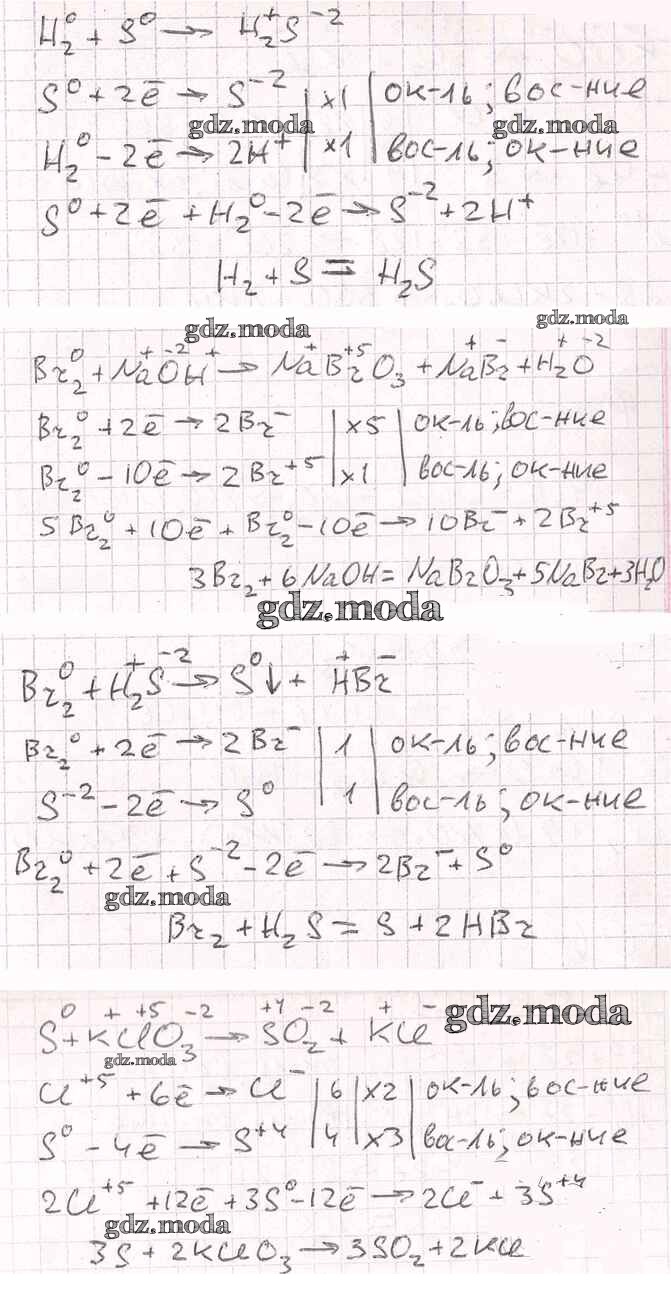 H₂⁰ + S⁰ → H₂⁺S⁻²
S⁰ + 2ē → S⁻² | ×1 | ок-ль; вос-ние
gdz.moda gdz.moda
H₂⁰ - 2ē → 2H⁺ | ×1 | вос-ль; ок-ние
S⁰ + 2ē + H₂⁰ - 2ē → S⁻² + 2H⁺
H₂ + S = H₂S
gdz.moda gdz.moda
Br₂⁰ + Na⁺O⁻²H⁺ → Na⁺Br⁺⁵O₃ + Na⁺Br⁻ + H₂⁺O⁻²
Br₂⁰ + 2ē → 2Br⁻ | ×5 | ок-ль; вос-ние
Br₂⁰ - 10ē → 2Br⁺⁵ | ×1 | вос-ль; ок-ние
5Br₂⁰ + 10ē + Br₂⁰ - 10ē → 10Br⁻ + 2Br⁺⁵
3Br₂ + 6NaOH = NaBrO₃ + 5NaBr + 3H₂O
gdz.moda
Br₂⁰ + H₂⁺S⁻² → S⁰↓ + H⁺Br⁻
Br₂⁰ + 2ē → 2Br⁻ | 1 | ок-ль; вос-ние
S⁻² - 2ē → S⁰ | 1 | вос-ль; ок-ние
Br₂⁰ + 2ē + S⁻² - 2ē → 2Br⁻ + S⁰
gdz.moda
Br₂ + H₂S = S + 2HBr
S⁰ + K⁺Cl⁺⁵O₃⁻² → S⁺⁴O₂⁻² + K⁺Cl⁻ gdz.moda
gdz.moda
Cl⁺⁵ + 6ē → Cl⁻ | 6 | ×2 | ок-ль; вос-ние
S⁰ - 4ē → S⁺⁴ | 4 | ×3 | вос-ль; ок-ние
2Cl⁺⁵ + 12ē + 3S⁰ - 12ē → 2Cl⁻ + 3S⁺⁴
gdz.moda
3S + 2KClO₃ → 3SO₂ + 2KCl